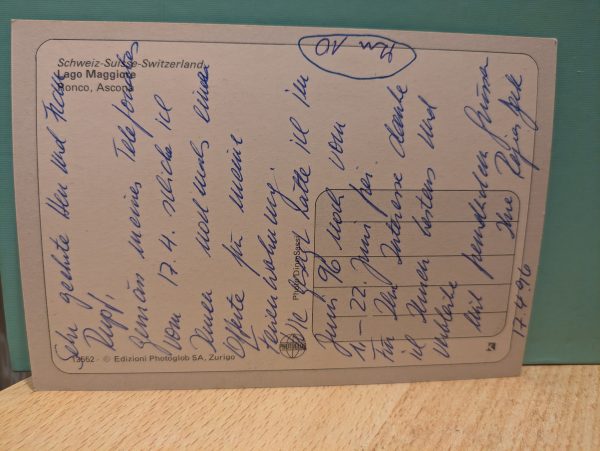 Schweiz-Suisse-Switzerland
Lago Maggiore
Ronco, Ascona
Sehr geehrte Herr und Frau
Rupf,
Gemäss meines Telefonates
vom 17.4. schicke ich
Ihnen nochmals einen
Offerte für meine
Ferienwohnung.
Wie gesagt hätte ich im
Juni 96 noch vom
11.-22. Juni frei.
Für Ihr Interesse danke
ich Ihnen bestens und
verbleibe
mit freundlichen Grüssen
Ihre
17.4.96
Photo: Dino Sassi
12552 - © Edizioni Photoglob SA, Zurigo